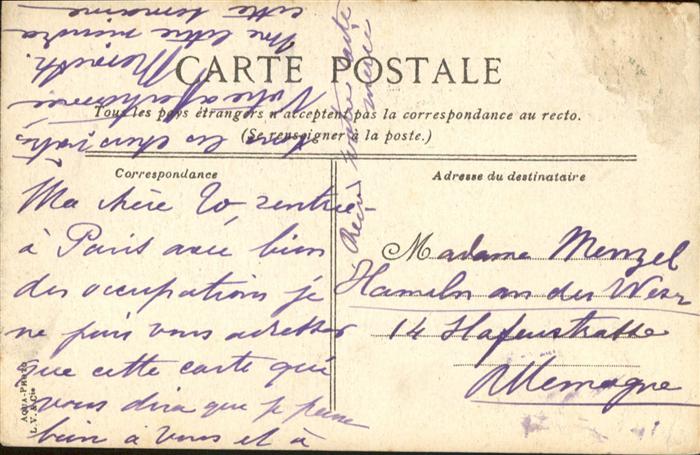 CARTE POSTALE
Tous les pays étrangers n'acceptent pas la correspondance au recto.
(Se renseigner à la poste.)
Correspondance
Adresse du destinataire
Ma chère Zo, rentrée
à Paris avec bien
des occupations je
ne puis vous adresser
que cette carte qui
vous dira que je pense
bien à vous et à
tous les chers
Votre affectionnée
Une lettre viendra
cette semaine
Reçu votre carte
merci
Madame Menzel
Hameln an der Weser
14 Hafenstrasse
Allemagne
AQUA-PHOTO
L. V. & Cie